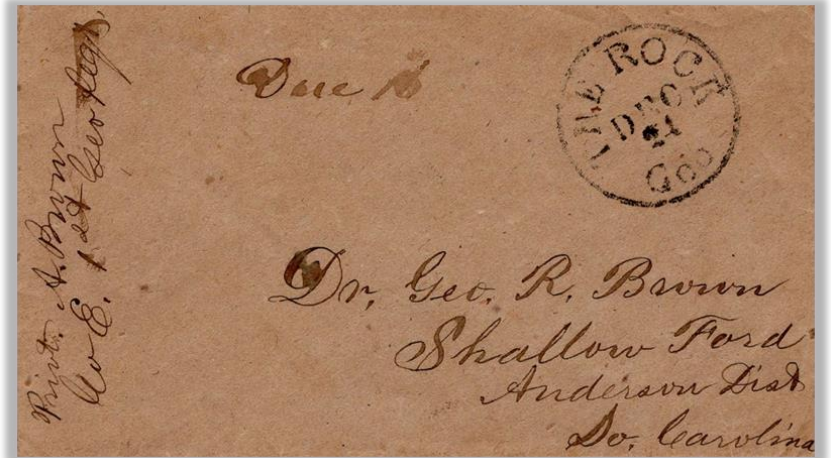 Privt. A. Brown
Co E. 1st Geo Regt
Due 10
THE ROCK
DEC
21
Geo
Dr. Geo. R. Brown
Shallow Ford
Anderson Dist
So. Carolina